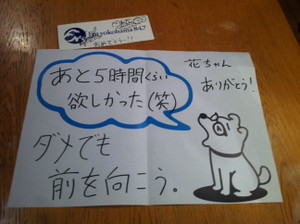 おめでとう!!
あと5時間くらい
欲しかった(笑)
花ちゃん
ありがとう!
ダメでも
前を向こう。